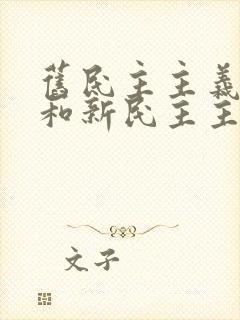 舊民主主義
和新民主主
文子